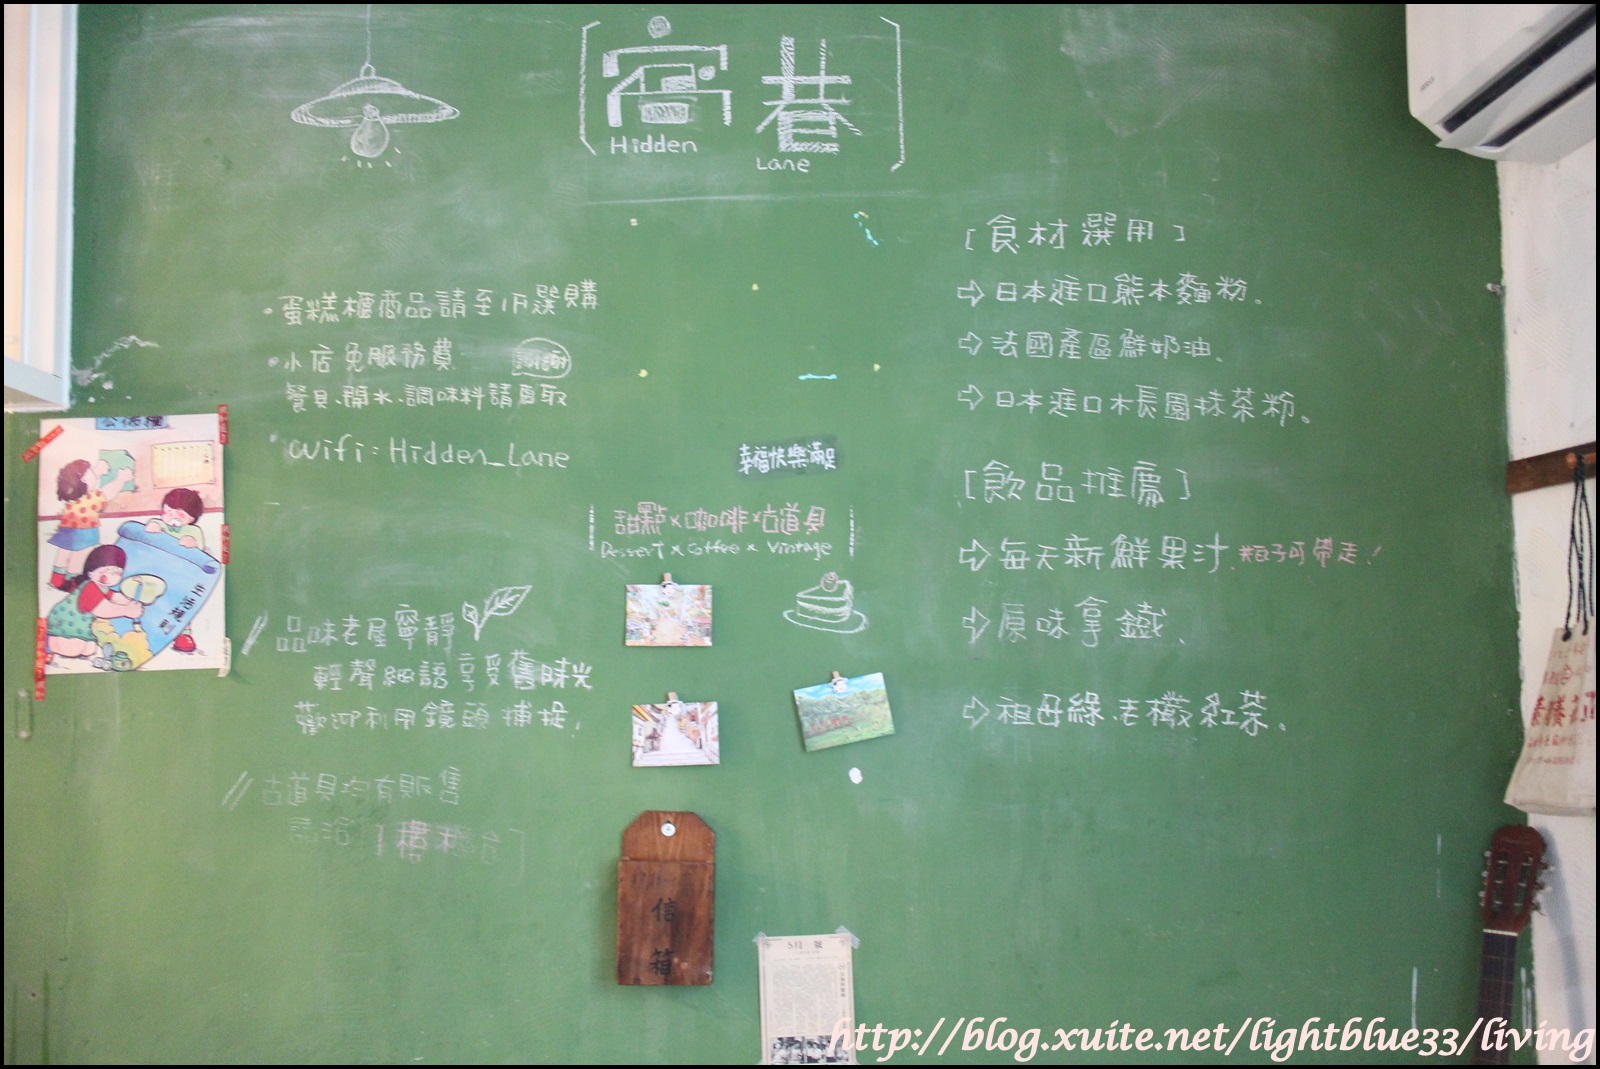 窩巷
Hidden
Lane
•蛋糕櫃商品請至1F選購
•小店免服務費
餐具、開水、調味料請自取
•Wifi:Hidden_Lane
//品味老屋寧靜
輕聲細語享受舊時光
歡迎利用鏡頭捕捉,
//古道具均有販售
請洽1樓櫃台
幸福快樂滿足
甜點×咖啡×古道具
Dessert × Coffee × Vintage
信
箱
5月號
[食材選用]
⇨日本進口熊本麵粉。
⇨法國產區鮮奶油、
⇨日本進口木長園抹茶粉。
[飲品推薦]
⇨每天新鮮果汁.瓶子可帶走!
⇨原味拿鐵、
⇨祖母綠、老欉紅茶。
公佈欄
生活規則
http://blog.xuite.net/lightblue33/living